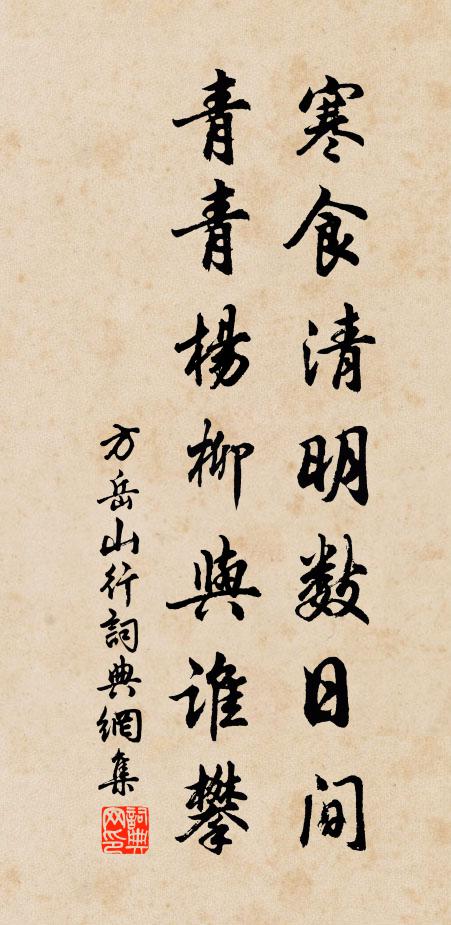 寒食清明数日间
青青楊柳與誰攀
方岳山行詞典網集
詞典网印